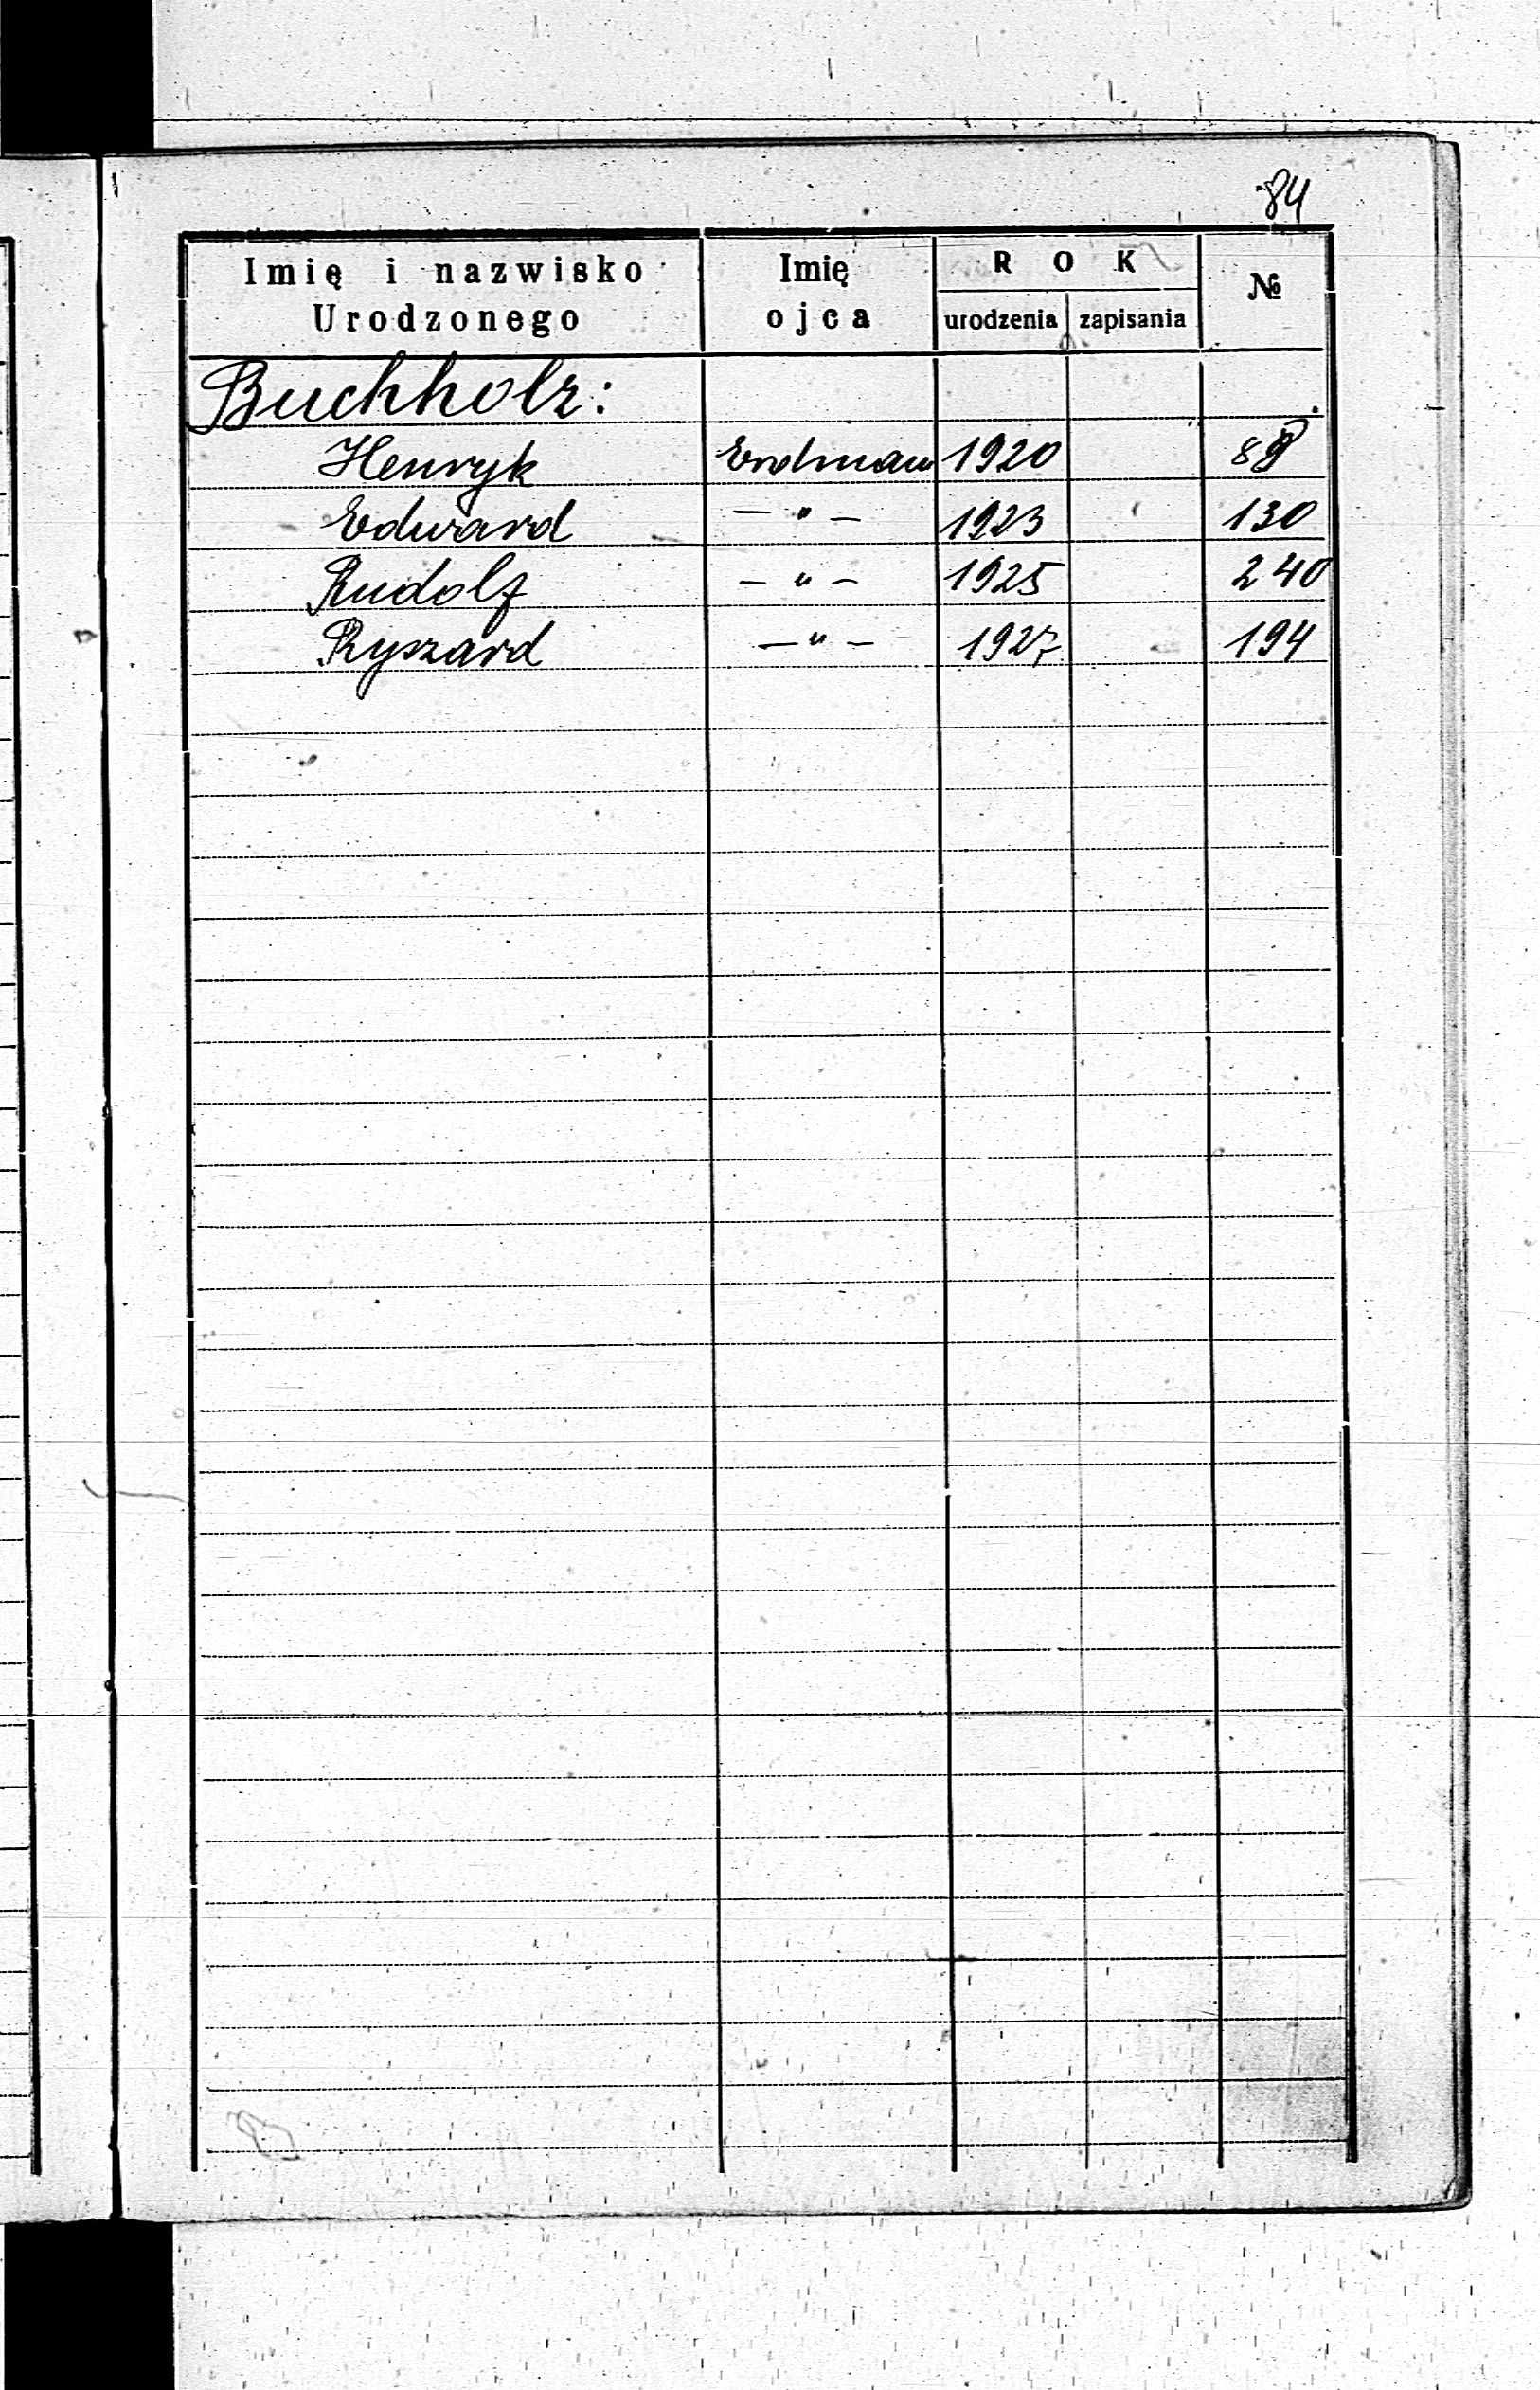 84
Imię i nazwisko Urodzonego Imię ojca ROK urodzenia zapisania №
Buchholz:
Henryk Erdman 1920
Edward — " — 1923 130
Rudolf — " — 1925 240
Ryszard — " — 1927 194